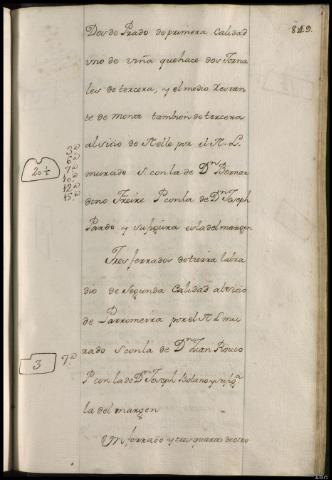 849.
Dos de Prado de primera Calidad
vno de viña que hace dos Jorna
les de tercera, y el medio Restan
te de monte tambien de tercera
al sitio de Nollo por el N. L.
murado S. con la de Dn. Bernar
dino Freire P. con la de Dn. Joseph
Pardo y su figura es la del margen
3.a
6.a
7.a
10.a
12.a
15.a
20 1/2
Tres ferrados de tierra labra
dio de Segunda Calidad al sitio
de Parromeira por el N. L. mu
rado S. con la de Dn. Juan Rouco
P. con la de Dn. Joseph Bolano y su fig.a
la del margen
7.a
3
Un ferrado y tres quartos de otro